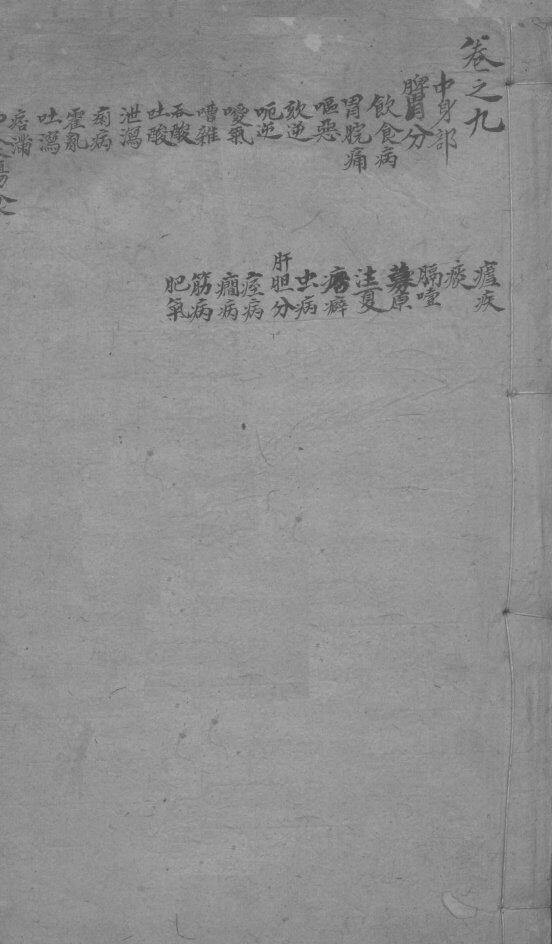 卷之九
中身部
脾胃分
飲食病
胃脘痛
嘔惡
欬逆
呃逆
噯氣
嘈雜
吞酸
吐酸
泄瀉
痢病
霍亂
吐瀉
痞滿
瘧疾
痰
膈噎
募原
注夏
癖
虫病
肝胆分
痓病
癇病
筋病
肥氣